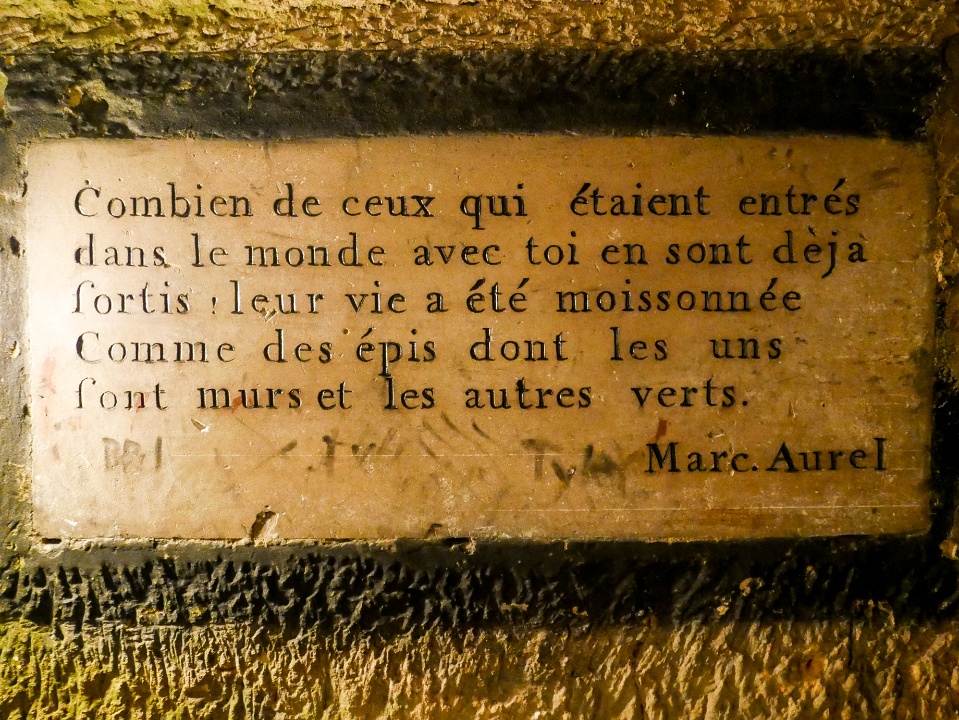 Combien de ceux qui étaient entrés
dans le monde avec toi en sont dèjà
ſortis ! leur vie a été moissonnée
Comme des épis dont les uns
ſont murs et les autres verts.
Marc. Aurel